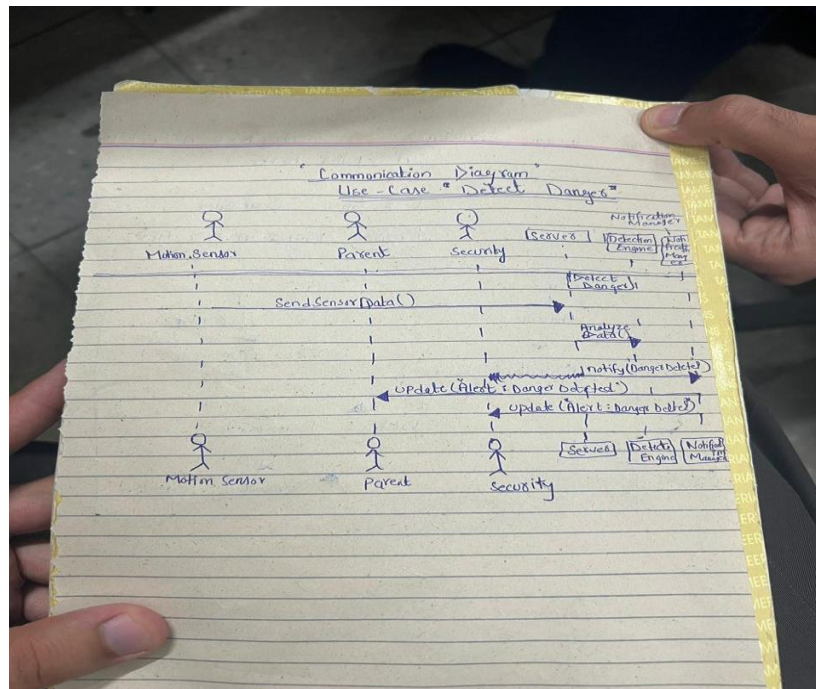 "Communication Diagram"
Use-Case "Detect Danger"
Notification Manager
Motion Sensor Parent Security Server Detection Engine
Detect Danger
SendSensorData()
Analyze Data()
notify(DangerDetected)
update("Alert: Danger Detected")
update("Alert: Danger Detted")
Motion Sensor Parent Security Server Engine